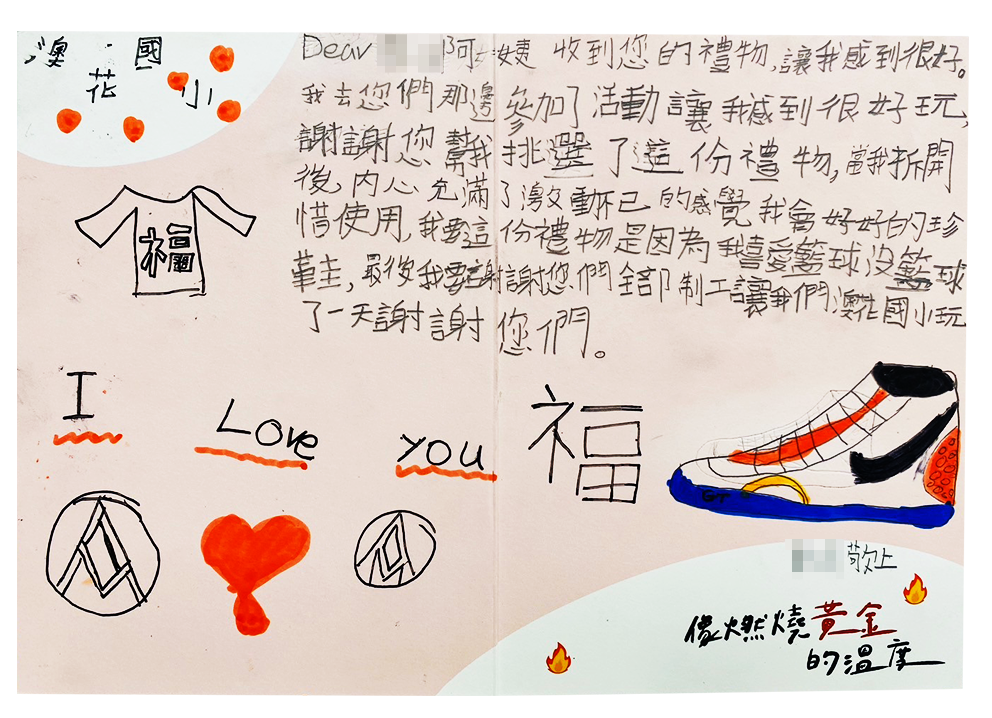 澳花國小
Dear 阿姨 收到您的禮物,讓我感到很好。
我去您們那邊參加了活動讓我感到很好玩,
謝謝您幫我挑選了這份禮物,當我拆開
後,內心充滿了激動不已的感覺我會好好的珍
惜使用,我要這份禮物是因為我喜愛籃球沒籃球
鞋,最後我要謝謝您們全部制工讓我們澳花國小玩
了一天謝謝您們。
福
I Love you
福
GT
敬上
像燃燒黃金
的溫度